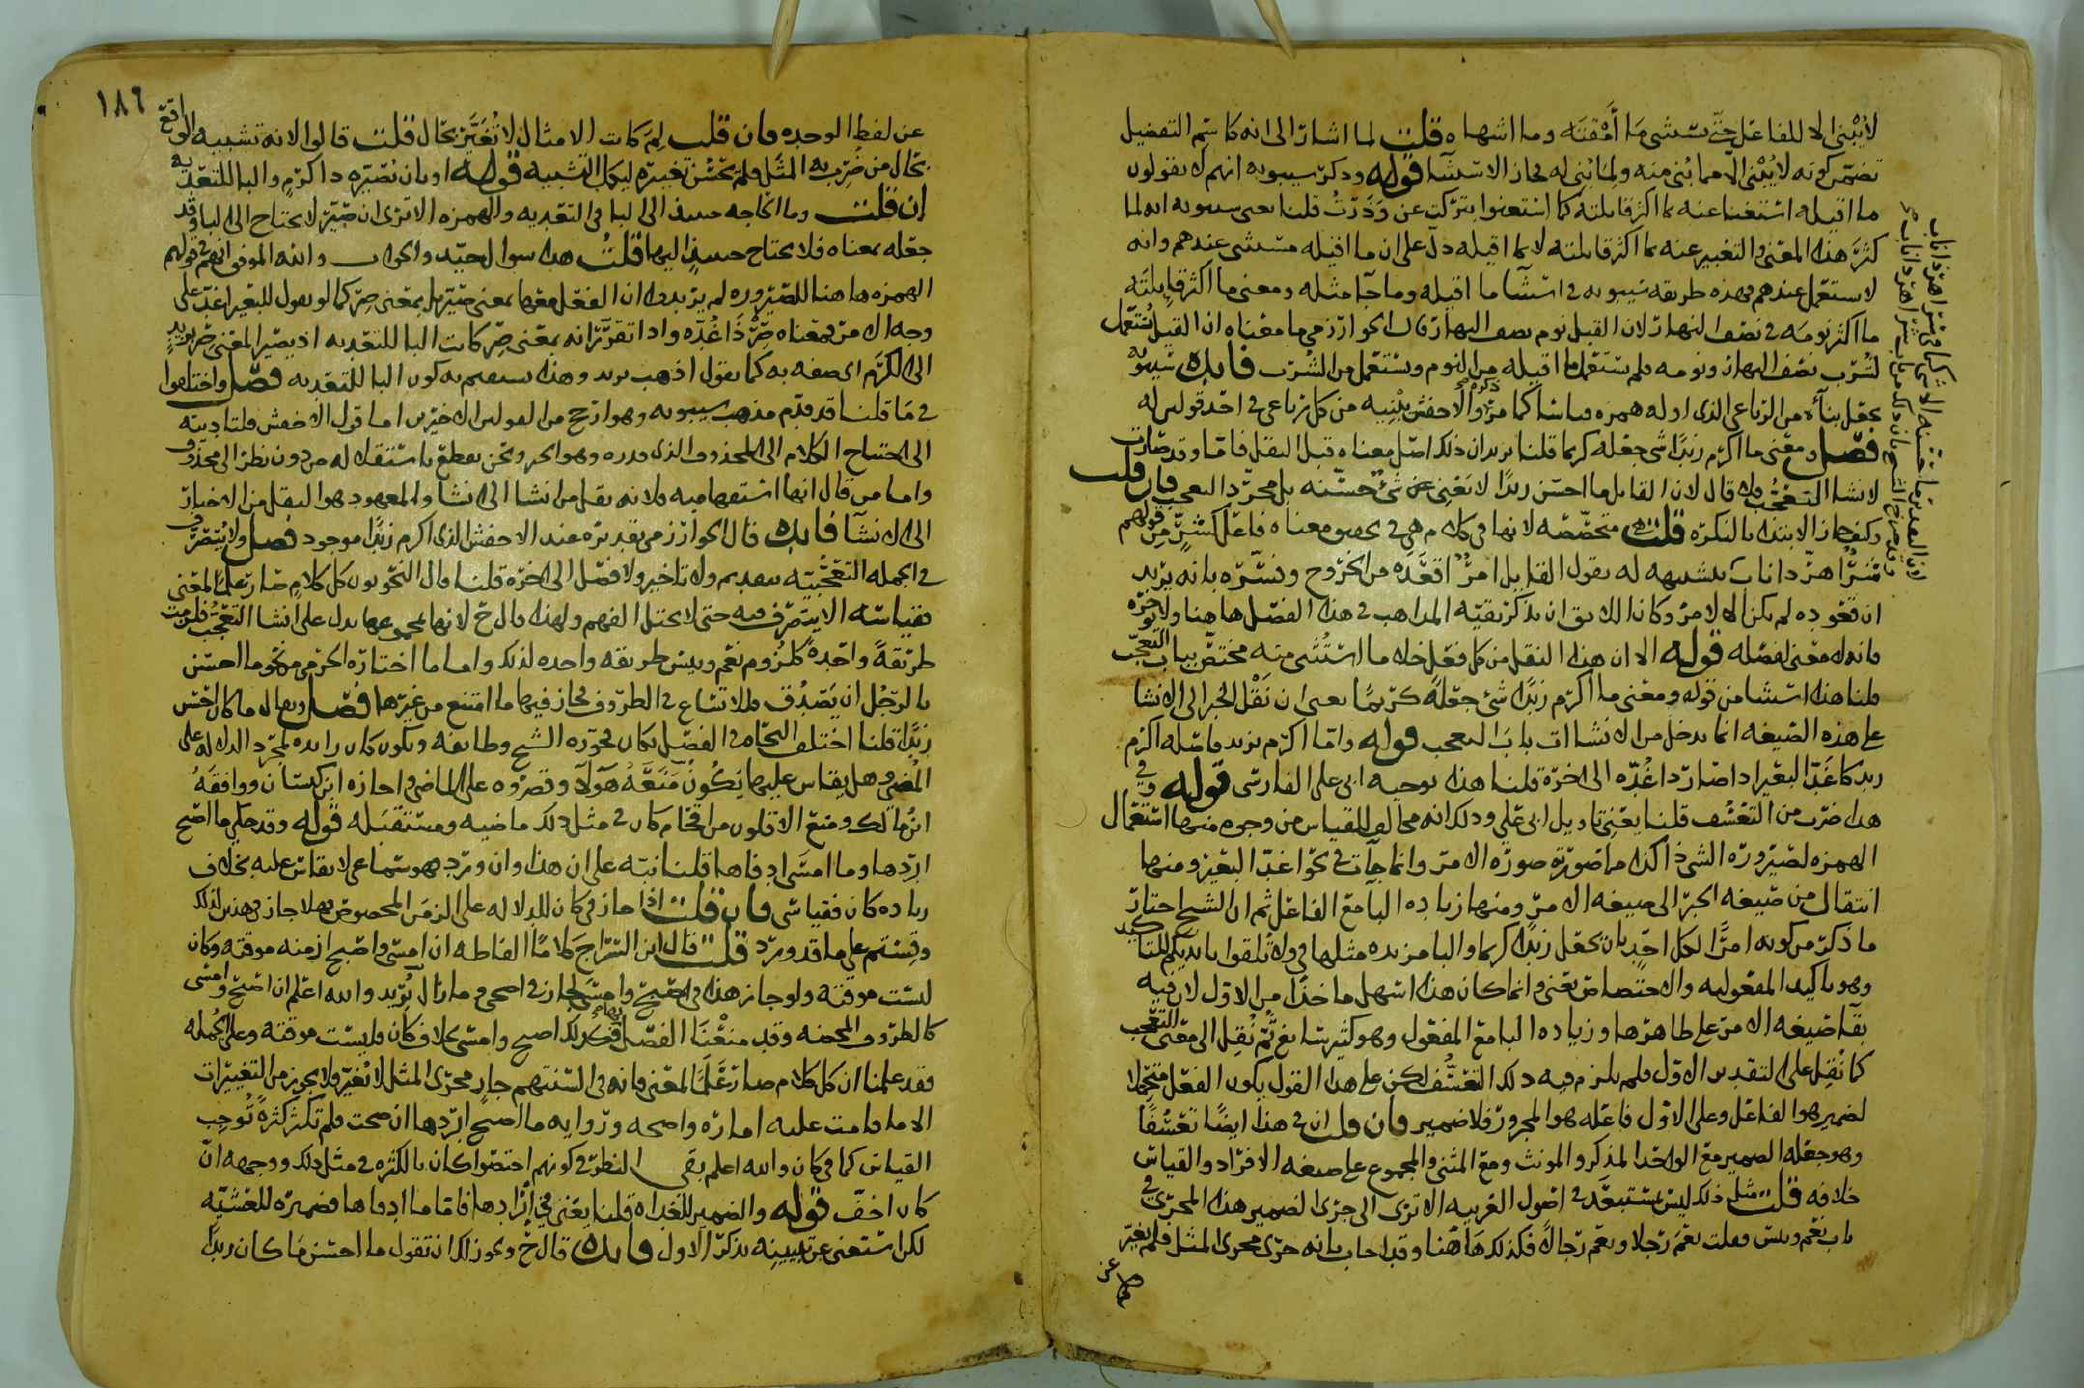 لا يبنى الا للفاعل حتى يستثنى ما أمقته وما اشهاه قلت لما اشار الى انه كاسم التفضيل
تضمن كونه لا يبنى الا مما بنى منه ولما بنى له فجاز الاستثنا قوله وذكر سيبويه انهم لا يقولون
ما اقيله استغنا عنه بما اكثر قايلته كما استغنوا بتركت عن وذرت قلنا يعنى سيبويه انه لما
كثر هذا المعنى والتعبير عنه بما اكثر قايلته لا بما اقيله دل على ان ما اقيله مستثنى عندهم وانه
لا يستعمل عندهم فهذه طريقة سيبويه في استثنا ما اقيله وما جا مثله ومعنى ما اكثر قايلته
ما اكثر نومه في نصف النهار لان القيل نوم نصف النهار قال الخوارزمي ما معناه ان القيل يستعمل
لشرب نصف النهار ونومه فلم يستعمل ما اقيله من النوم ويستعمل من الشرب فايده سيبويه
يجعل بناه من الرباعي الذي اوله همزه قياسا كما مر والاخفش يبنيه من كل رباعي في احد قوليه
فصل ومعنى ما اكرم زيدا شي جعله كريما قلنا يريد ان ذلك اصل معناه قبل النقل فاما وقد صارت
لانشا التعجب فلا قال لان القايل ما احسن زيدا لا يعنى عن شي حسنه بل مجرد التعجب فان قلت
وكيف جاز الابتدا بالنكرة قلت متخصصه لانها في كلام هي في تحقيق معناه فاعل كشر من قولهم
شر اهر ذا ناب تشبيهه له بقول القايل امر اقعده من الخروج وفسره بانه يريد
ان قعوده لم يكن الا لامر وكان اللايق ان يذكر بقية المذاهب في هذا الفصل هاهنا ولا يوخره
فانه لا معنى لفصله قوله الا ان هذا النقل من كل فعل خلا ما استثنى منه مختص بباب التعجب
قلنا هذا استثنا من قوله ومعنى ما اكرم زيدا شي جعله كريما يعنى ان نقل الخبر الى الانشا
على هذه الصيغه انما يدخل من الانشاات باب التعجب قوله واما اكرم بزيد فاصله اكرم
زيد كاغد البعير اذا صار ذا غده الى اخره قلنا هذا توجيه ابي علي الفارسي قوله وفي
هذا ضرب من التعسف قلنا يعنى تاويل ابي علي وذلك انه مخالف للقياس من وجوه منها استعمال
الهمزه لصيروره الشي ذا كذا ما صورته صورة الامر وانما جات في نحو اغد البعير ومنها
انتقال من صيغه الخبر الى صيغه الامر ومنها زياده البا مع الفاعل ثم ان الشيخ اختار
ما ذكر من كونه امرا لكل احد بان يجعل زيدا كريما والبا مزيده مثلها في ولا تلقوا بايديكم للتاكيد
وهو تاكيد المفعوليه والاختصاص يعنى وانما كان هذا اسهل ماخذا من الاول لان فيه
بقا صيغه الامر على ظاهرها وزياده البا مع المفعول وهو كثير شايع ثم نقل الى معنى التعجب
كما نقل على التقدير الاول فلم يلزم فيه ذلك التعسف لكن على هذا القول يكون الفعل متحملا
لضمير هو الفاعل وعلى الاول فاعله هو المجرور فلا ضمير فان قلت ان في هذا ايضا تعسفا
وهو جعله الضمير مع الواحد المذكر والمونث ومع المثنى والمجموع على صيغه الافراد والقياس
خلافه قلت مثل ذلك ليس بمستبعد في اصول العربيه الا ترى الى جرى الضمير هذا المجرى في
باب نعم وبئس فقلت نعم رجلا ونعم رجالا فكذلك هاهنا وقد اجاب بانه جرى مجرى المثل فلم يغير
عن
١٨٦
عن لفظ الوحده فان قلت لم كانت الامثال لا تغير بحال قلت قالوا لانه تشبيه الواقع
بحال من ضرب به المثل فلم يحسن تغييره ليكمل التشبيه قوله او بان تصيره ذا كرم والبا للتعديه
ان قلت وما الحاجه حينئذ الى البا في التعديه والهمزه الا ترى ان صير لا يحتاج الى البا وقد
جعله بمعناه فلا يحتاج حينئذ اليها قلت هذا سوال جيد والجواب والله الموفق انهم في قولهم
الهمزه هاهنا للصيروره لم يريدوا ان الفعل معها بمعنى صير بل بمعنى صر كما لو يقول للبعير اغد على
وجه الامر فمعناه صر ذا غده واذا تقرر انه بمعنى صر كانت البا للتعديه اذ يصير المعنى صر بزيد
الى الكرم اي صفه به كما يقول اذهب بزيد وهذا يستقيم به كون البا للتعديه فصل واختلفوا
في ما قلنا قد تقدم مذهب سيبويه وهو ارجح من القولين الاخيرين اما قول الاخفش فلتاديته
الى احتياج الكلام الى المحذوف الذي قدره وهو الخبر ونحن نقطع باستقلاله من دون نظر الى محذوف
واما من قال انها استفهاميه فلانه نقل من انشا الى انشا والمعهود هو النقل من الاخبار
الى الانشا فايده قال الخوارزمي تقديره عند الاخفش الذي اكرم زيدا موجود فصل ولا يتصرف
في الجمله التعجبيه بتقديم ولا تاخير ولا فصل الى اخره قلنا قال النحويون كل كلام صار علما لمعنى
فقياسه الا يتصرف فيه حتى لا يختل الفهم ولهذا قال خ لانها بمجموعها تدل على انشا التعجب فلزمت
طريقة واحدة كلزوم نعم وبيس طريقه واحده لذلك واما ما اختاره الجرمي من نحو ما احسن
بالرجل ان يصدق فللاتساع في الظروف فجاز فيها ما امتنع من غيرها فصل ويقال ما كان احسن
زيدا قلنا اختلف النحاه في الفصل بكان فجوزه الشيخ وطايفه ويكون كان زايده لمجرد الدلاله على
المضي وهل يقاس عليها يكون منعه هولا وقصروه على الماضي واجازه ابن كيسان ووافقه
ابن مالك ومنع الاقلون من اقحام كان في مثل ذلك ماضيه ومستقبله قوله وقد حكي ما اصبح
ابردها وما امسى ادفاها قلنا نبه على ان هذا وان ورد فهو سماعي لا يقاس عليه بخلاف
زياده كان فقياسي فان قلت اذا جاز في كان للدلاله على الزمن المخصوص فهلا جاز في هذين لذلك
وقستم على ما قد ورد قلت قال ابن السراج كلاما الفاظه ان امسى واصبح ازمنه موقته وكان
ليست موقته ولو جاز هذا في اصبح وامسى لجاز في اضحى وما زال نويد والله اعلم ان اصبح وامسى
كالظروف المحضه وقد منعنا الفصل بها فكذلك اصبح وامسى بخلاف كان فليست موقته وعلى الجمله
فقد علمنا ان كل كلام صار علما لمعنى فانه في السنتهم جار مجرى المثل لا يغير ولا يجوز من التغييرات
الا ما قامت عليه اماره واضحه وروايه ما اصبح ابردها ان صحت فلم تكثر كثرة توجب
القياس كما في كان والله اعلم بقي النظر في كونهم اختصوا كان بالكثره في مثل ذلك ووجهه ان
كان اخف قوله والضمير للغداه قلنا يعنى في ابردها فاما ما ادفاها فضميره للعشيه
لكن استغنى عن تبيينه بذكر الاول فايده قال خ ويجوز لك ان تقول ما احسن ما كان زيدا